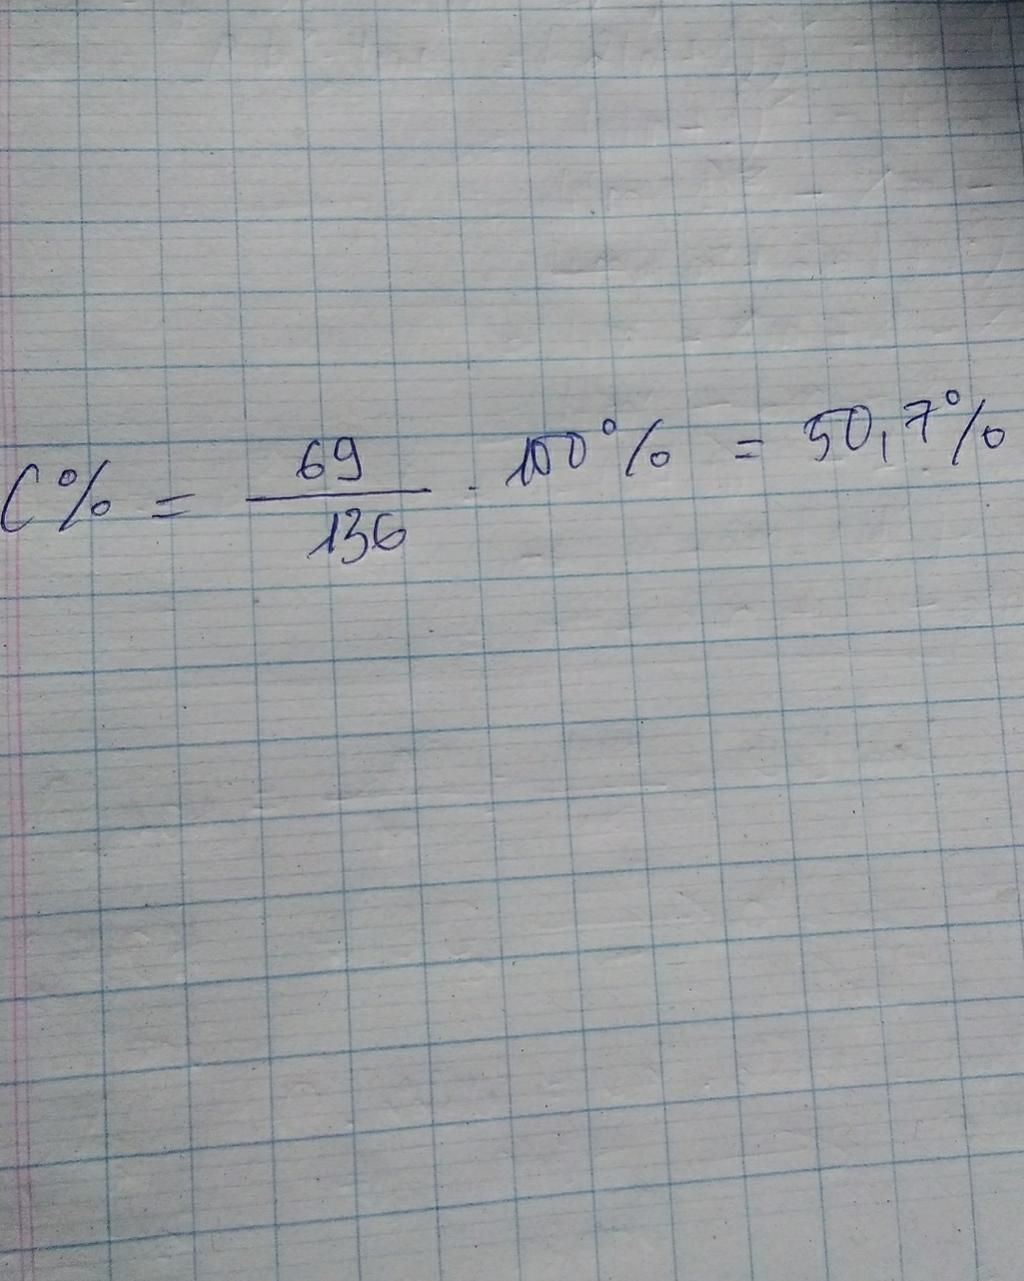 C% = 69/136 · 100% = 50,7%